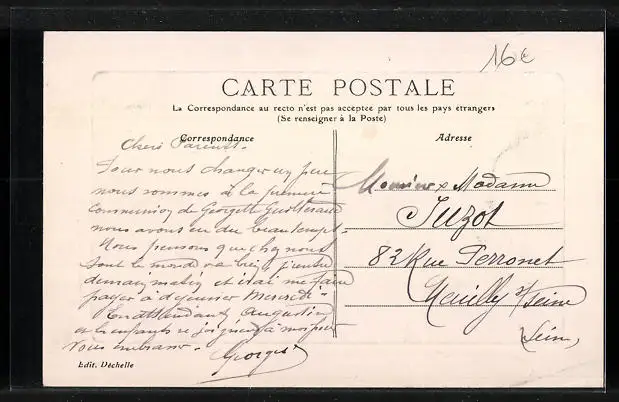 16€
CARTE POSTALE
La Correspondance au recto n'est pas acceptée par tous les pays étrangers
(Se renseigner à la Poste)
Correspondance
Adresse
Chers Parents.
Pour nous changer un peu
nous sommes à la première
communion de Georgette
nous avons eu du beau temps.
Nous pensons que chez nous
tout le monde va bien
demain matin et me faire
payer à déjeuner Mercredi.
En attendant, Augustine
et les enfants se joignent à moi pour
vous embrasser.
Georges
Monsieur & Madame
Juzot
82 Rue Perronet
Neuilly s/ Seine
(Seine)
Edit. Déchelle